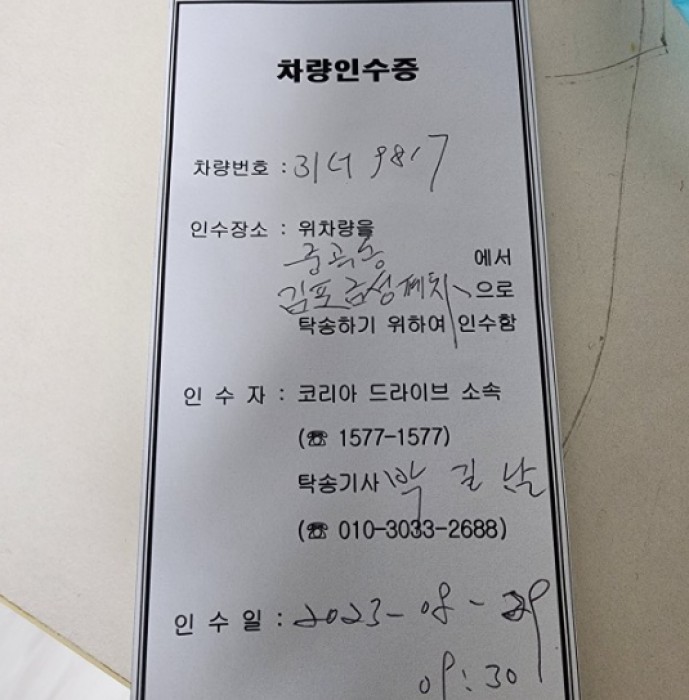 차량인수증
차량번호 : 31너 9817
인수장소 : 위차량을
중곡동 에서
김포 금성폐차 으로
탁송하기 위하여 인수함
인 수 자 : 코리아 드라이브 소속
(☎ 1577-1577)
탁송기사 박 길 남
(☎ 010-3033-2688)
인 수 일 : 2023-08-29
09:30